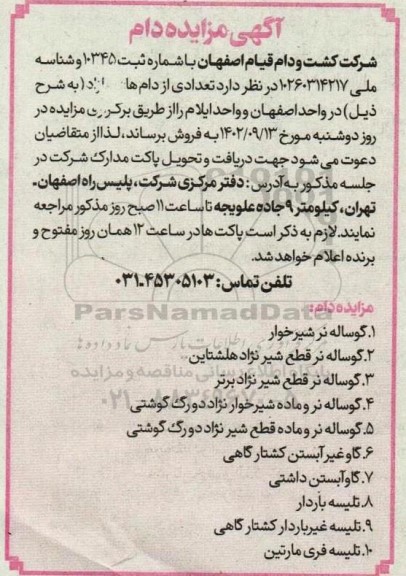 آگهی مزایده دام
شرکت کشت و دام قیام اصفهان با شماره ثبت ۱۰۳۴۵ و شناسه
ملی ۱۰۲۶۰۳۱۴۲۱۷ در نظر دارد تعدادی از دام ها (به شرح
ذیل) در واحد اصفهان و واحد ایلام را از طریق مزایده در
روز دوشنبه مورخ ۱۴۰۲/۰۹/۱۳ به فروش برساند، لذا از متقاضیان
دعوت می شود جهت دریافت و تحویل پاکت مدارک شرکت در
جلسه مذکور به آدرس: دفتر مرکزی شرکت، پلیس راه اصفهان ـ
تهران، کیلومتر ۹ جاده علویجه تا ساعت ۱۱ صبح روز مذکور مراجعه
نمایند. لازم به ذکر است پاکت ها در ساعت ۱۲ همان روز مفتوح و
برنده اعلام خواهد شد.
تلفن تماس: ۴۵۳۰۵۱۰۳-۰۳۱
ParsNamadData
مزایده دام:
۱. گوساله نر شیرخوار
۲. گوساله نر قطع شیر نژاد هلشتاین
۳. گوساله نر قطع شیر نژاد برتر
پایگاه اطلاع رسانی مناقصه و مزایده
۴. گوساله نر و ماده شیرخوار نژاد دورگ گوشتی
۵. گوساله نر و ماده قطع شیر نژاد دورگ گوشتی
۶. گاو غیر آبستن کشتارگاهی
۷. گاو آبستن داشتی
۸. تلیسه باردار
۹. تلیسه غیرباردار کشتارگاهی
۱۰. تلیسه فری مارتین